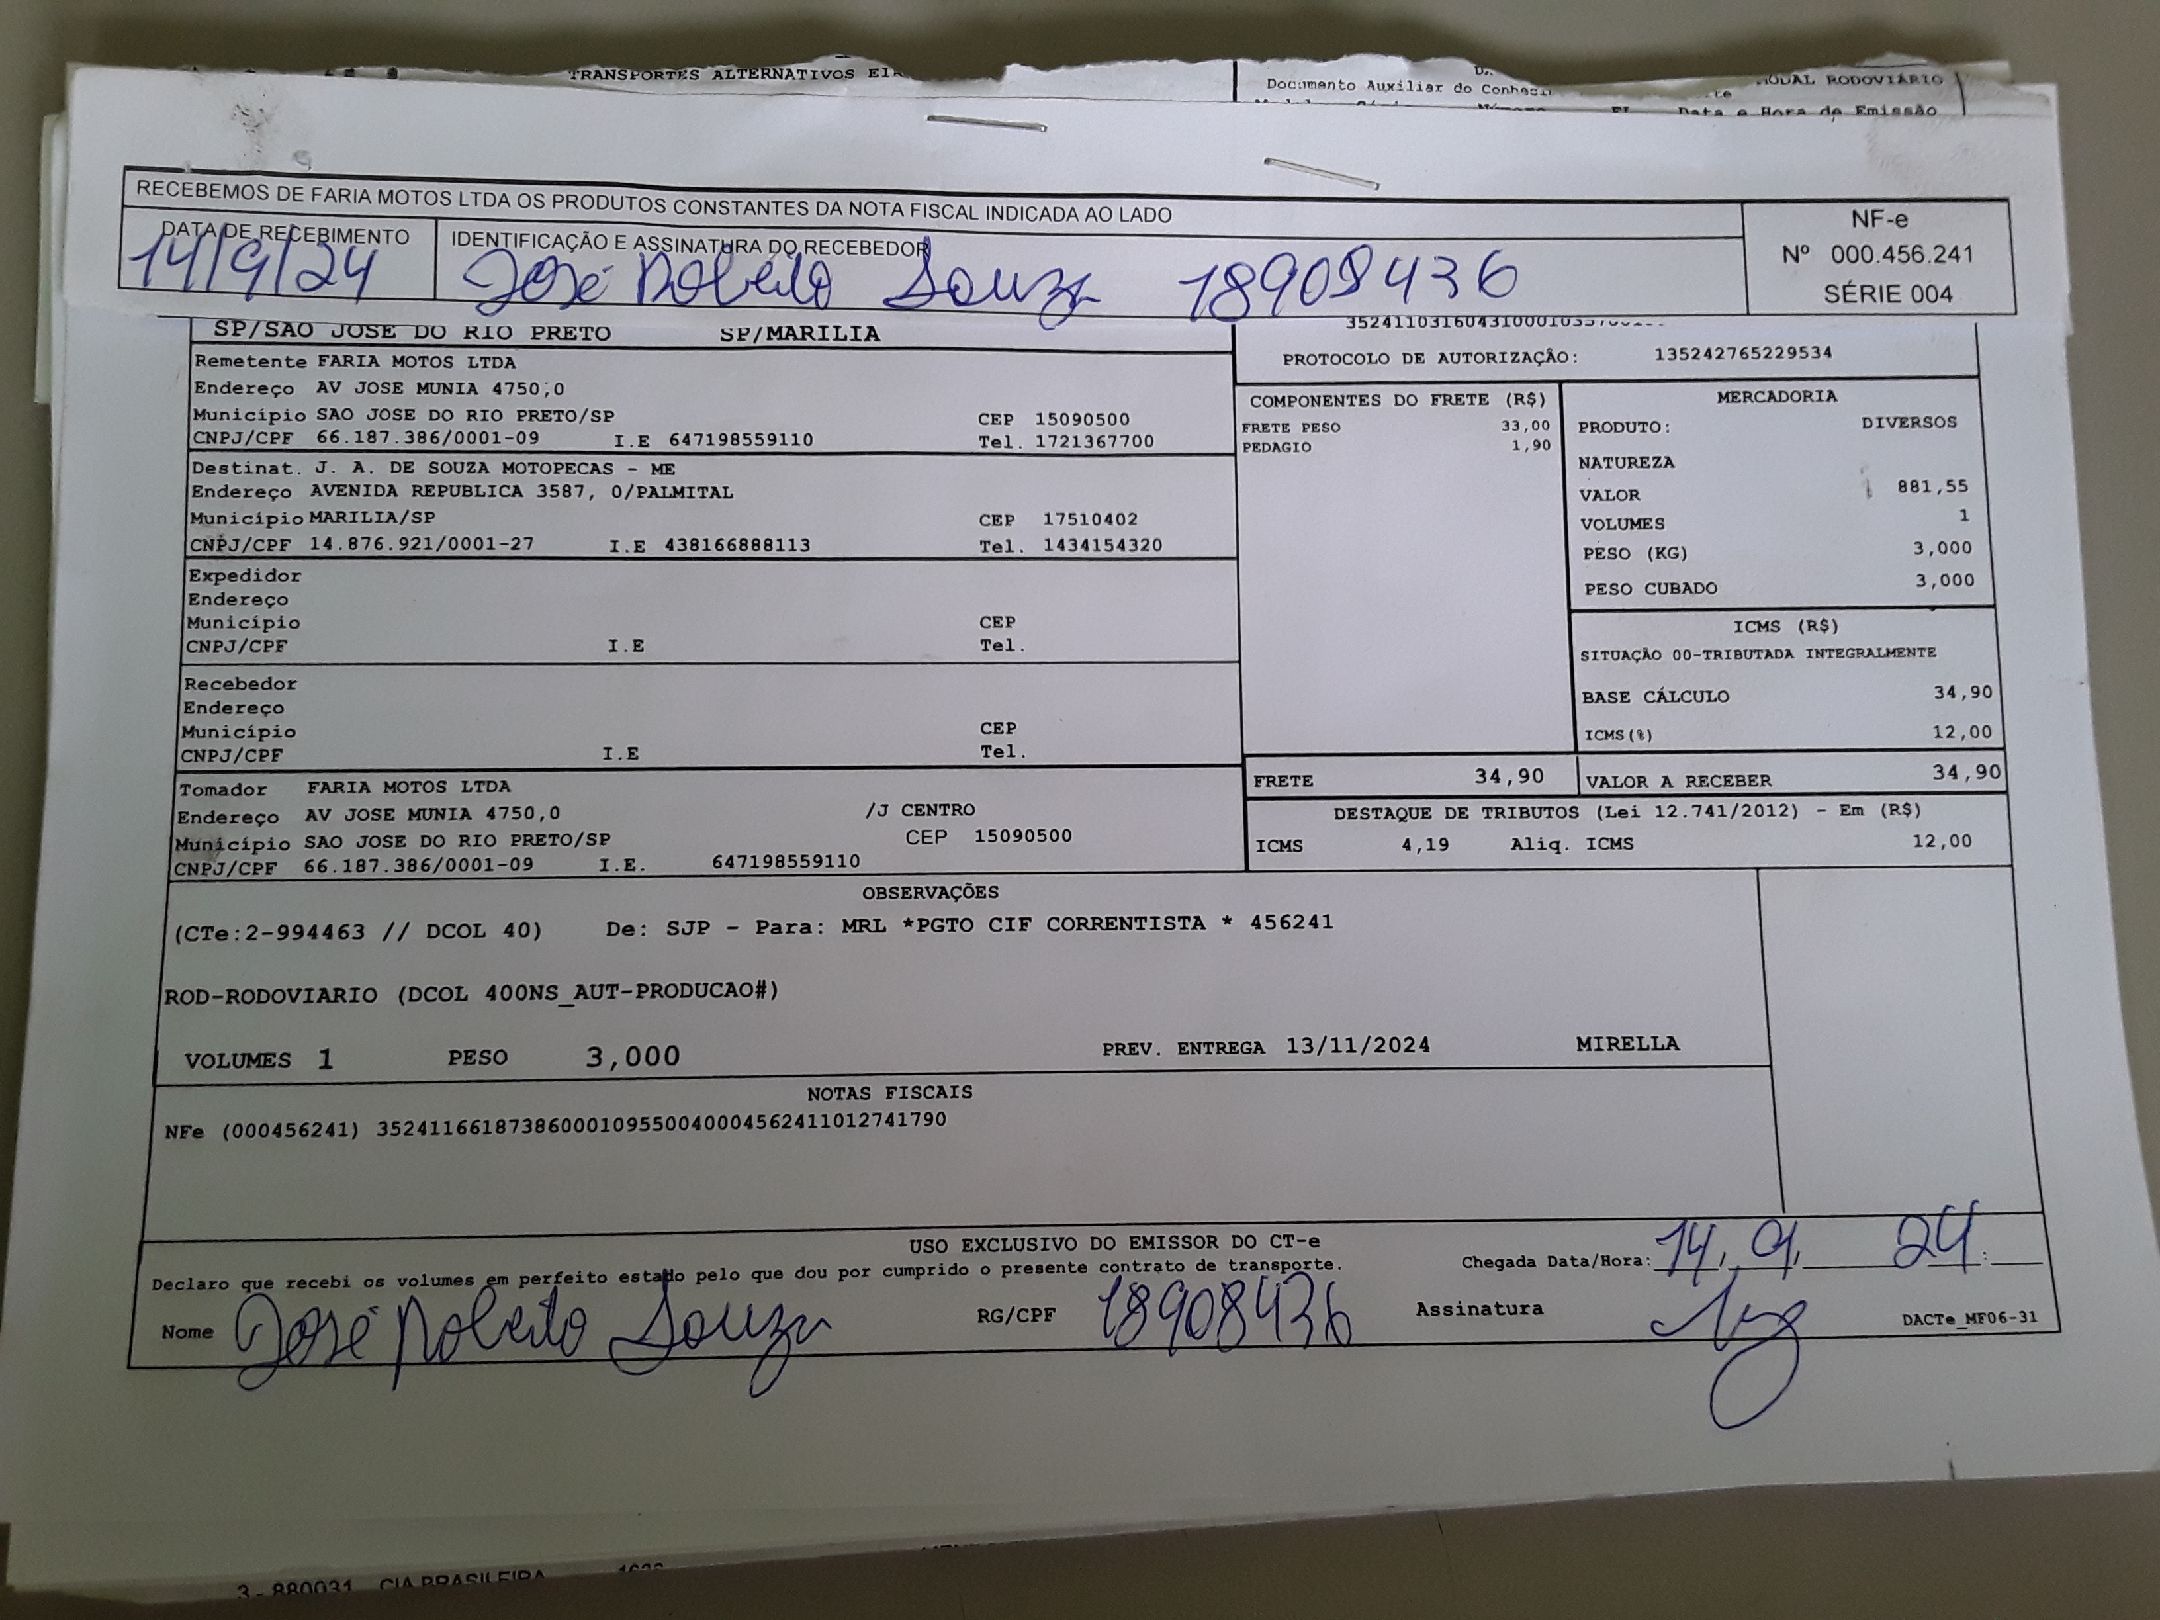 TRANSPORTES ALTERNATIVOS
Documento Auxiliar do
MODAL RODOVIÁRIO
Data e Hora de Emissão
RECEBEMOS DE FARIA MOTOS LTDA OS PRODUTOS CONSTANTES DA NOTA FISCAL INDICADA AO LADO
NF-e
Nº 000.456.241
SÉRIE 004
DATA DE RECEBIMENTO
14/9/24
IDENTIFICAÇÃO E ASSINATURA DO RECEBEDOR
José Roberto Souza 18908436
SP/SAO JOSE DO RIO PRETO SP/MARILIA
PROTOCOLO DE AUTORIZAÇÃO: 135242765229534
Remetente FARIA MOTOS LTDA
Endereço AV JOSE MUNIA 4750,0
Município SAO JOSE DO RIO PRETO/SP CEP 15090500
CNPJ/CPF 66.187.386/0001-09 I.E 647198559110 Tel. 1721367700
Destinat. J. A. DE SOUZA MOTOPECAS - ME
Endereço AVENIDA REPUBLICA 3587, 0/PALMITAL
Município MARILIA/SP CEP 17510402
CNPJ/CPF 14.876.921/0001-27 I.E 438166888113 Tel. 1434154320
Expedidor
Endereço
Município CEP
CNPJ/CPF I.E Tel.
Recebedor
Endereço
Município CEP
CNPJ/CPF I.E Tel.
Tomador FARIA MOTOS LTDA
Endereço AV JOSE MUNIA 4750,0 /J CENTRO
Município SAO JOSE DO RIO PRETO/SP CEP 15090500
CNPJ/CPF 66.187.386/0001-09 I.E. 647198559110
COMPONENTES DO FRETE (R$)
FRETE PESO 33,00
PEDAGIO 1,90
MERCADORIA
PRODUTO: DIVERSOS
NATUREZA
VALOR 881,55
VOLUMES 1
PESO (KG) 3,000
PESO CUBADO 3,000
ICMS (R$)
SITUAÇÃO 00-TRIBUTADA INTEGRALMENTE
BASE CÁLCULO 34,90
ICMS(%) 12,00
FRETE 34,90 VALOR A RECEBER 34,90
DESTAQUE DE TRIBUTOS (Lei 12.741/2012) - Em (R$)
ICMS 4,19 Aliq. ICMS 12,00
OBSERVAÇÕES
(CTe:2-994463 // DCOL 40) De: SJP - Para: MRL *PGTO CIF CORRENTISTA * 456241
ROD-RODOVIARIO (DCOL 400NS_AUT-PRODUCAO#)
VOLUMES 1 PESO 3,000 PREV. ENTREGA 13/11/2024 MIRELLA
NOTAS FISCAIS
NFe (000456241) 35241166187386000109550040004562411012741790
USO EXCLUSIVO DO EMISSOR DO CT-e
Declaro que recebi os volumes em perfeito estado pelo que dou por cumprido o presente contrato de transporte.
Chegada Data/Hora: 14, 9, 24 :
Nome José Roberto Souza RG/CPF 18908436 Assinatura
DACTe_MF06-31
3 - 880031 CIA BRASILEIRA